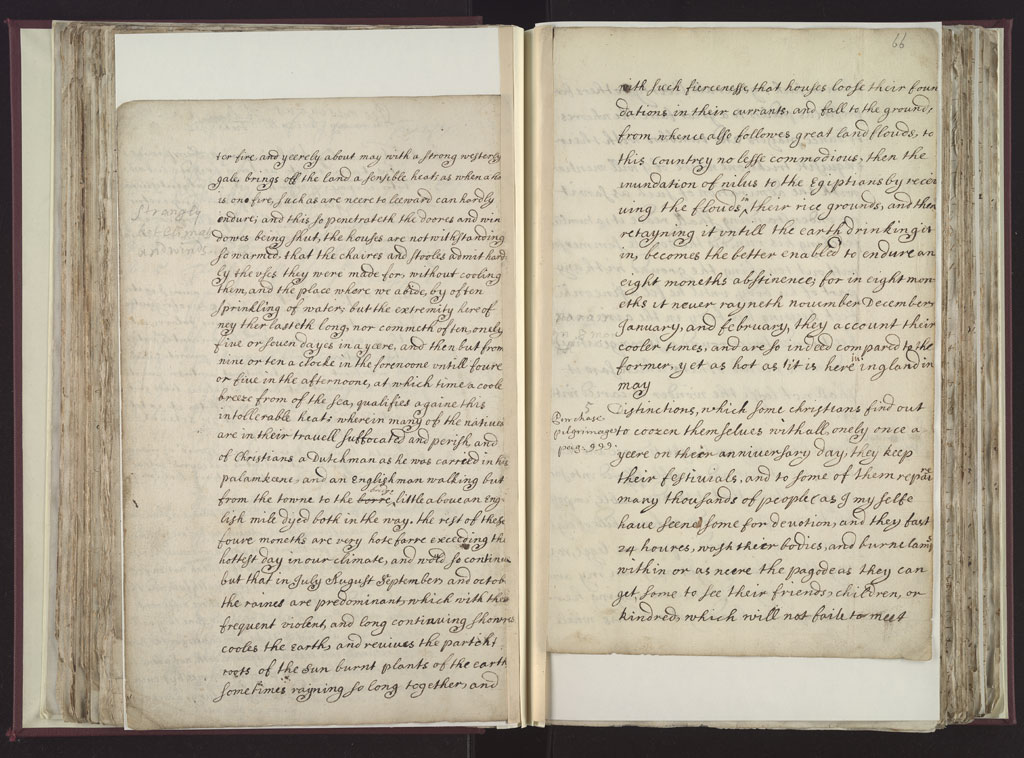 ter fire and yeerely about may with a strong westerly
gale, brings off the land a sensible heat; as when a
is on fire, such as are neere to leeward can hardly
endure; and this so penetrateth the doores and win
dowes being shut, the houses are notwithstanding
so warmed, that the chaires and stooles admit hard
ly the vses they were made for, without cooling
them, and the place where we abide, by often
sprinkling of water; but the extremity hereof
ney ther lasteth long, nor commeth often, onely
five or seuen dayes in a yeere, and then but from
nine or ten a clocke in the forenoone vntill foure
or five in the afternoone, at which time a coole
breeze from of the sea, qualifies againe this
intollerable heat; wherein many of the natiues
are in their travell suffocated and perish, and
of Christians a Dutchman as he was carried in his
palamkeene, and an Englishman walking but
from the towne to the barre, little aboue an Eng
lish mile dyed both in the way. the rest of these
foure moneths are very hote farre exceeding the
hottest day in our climate, and wold so continue
but that in July August September, and octob
the raines are predominant, which with their
frequent violent, and long continuing showres
cooles the Earth, and revives the partcht
roots of the Sun burnt plants of the earth
sometimes rayning so long together, and
66
with such fiercenesse, that houses loose their foun
dations in their currants, and fall to the ground,
from whence alse followes great land flouds, to
this countrey no lesse commodious, then the
inundation of nilus to the Egiptians by recei
uing the flouds in their rice grounds, and then
retayning it vntill the earth drinking it
in, becomes the better enabled to endure an
eight moneths abstinence; for in eight mon
eths it never rayneth november December
January, and february, they account their
cooler times, and are so indeed compard to the
former, yet as hot as it is here in ingland in
may
Purchase
pilgrimage
pag: 999.
Distinctions, which some christians find out
to coozen themselues withall, onely once a
yeere on their anniuersary day, they keep
their festiuials, and to some of them repaire
many thousands of people (as I my selfe
haue seene) some for devotion, and they fast
24 houres, wash their bodies, and burne lamps
within or as neere the pagode as they can
get, some to see their friends, children, or
kindred, which will not faile to meet